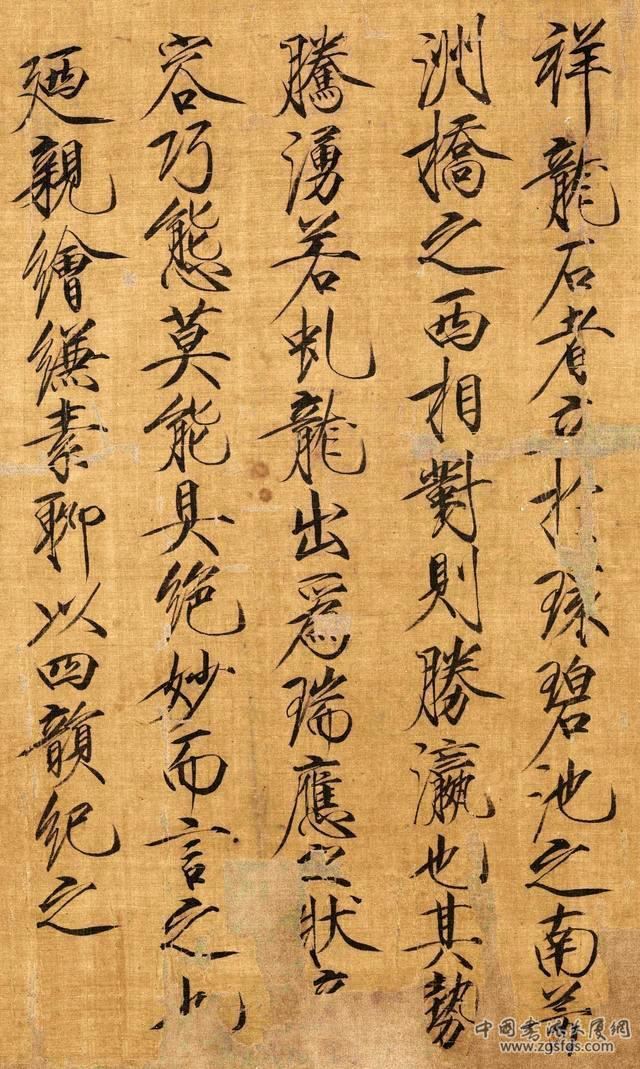 祥龍石者於環碧池之南芳
洲橋之西相對則勝瀛也其勢
騰湧若虬龍出爲瑞應之狀
容巧態莫能具絕妙而言之
廼親繪縑素聊以四韻紀之
中國書法大厦網
www.zgsfds.com